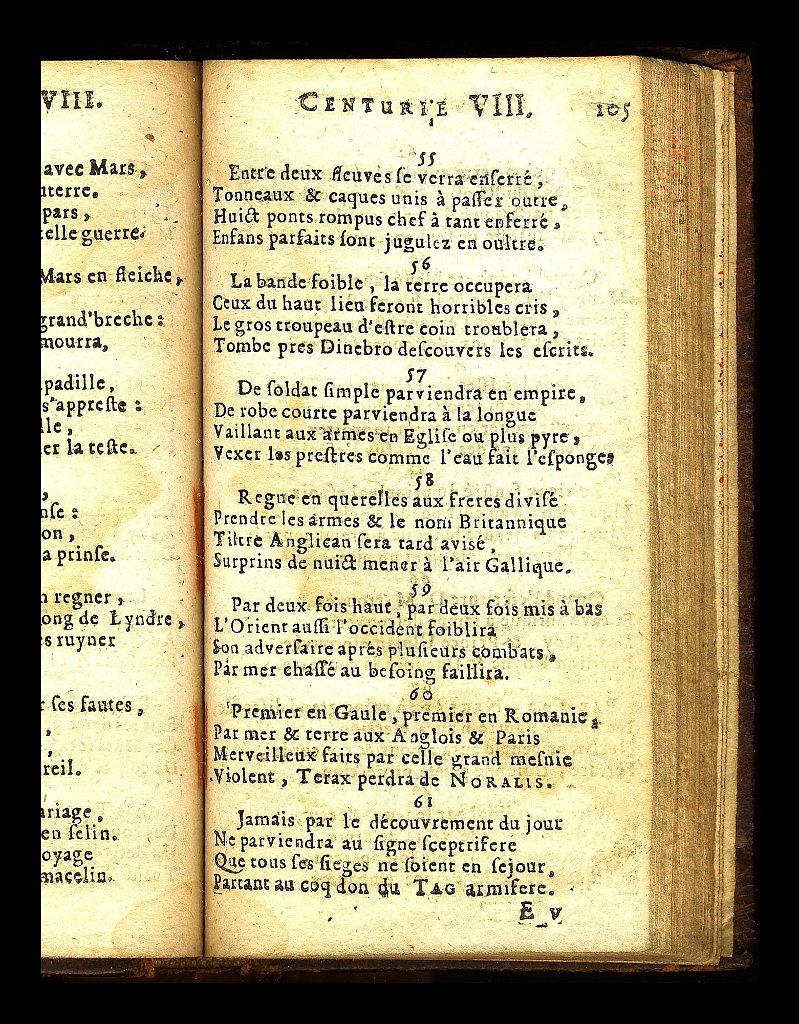 VIII.
avec Mars,
nterre.
pars,
celle guerre.
Mars en fleiche,
grand'breche:
mourra,
padille,
s'appreſte:
lle,
er la teſte.
,
nſe:
on,
a prinſe.
n regner,
ong de Lyndre,
es ruyner
r ſes fautes,
,
,
reil.
ariage,
en ſelin.
oyage
macelin.
CENTURIE VIII. 105
55
Entre deux fleuves ſe verra enſerré,
Tonneaux & caques unis à paſſer outre,
Huict ponts rompus chef à tant enferré,
Enfans parfaits ſont jugulez en oultre.
56
La bande foible, la terre occupera
Ceux du haut lieu feront horribles cris,
Le gros troupeau d'eſtre coin troublera,
Tombe pres Dinebro deſcouvers les eſcrits.
57
De ſoldat ſimple parviendra en empire,
De robe courte parviendra à la longue
Vaillant aux armes en Egliſe ou plus pyre,
Vexer les preſtres comme l'eau fait l'eſponge,
58
Regne en querelles aux freres diviſé
Prendre les armes & le nom Britannique
Tiltre Anglican ſera tard avisé,
Surprins de nuict mener à l'air Gallique.
59
Par deux fois haut, par deux fois mis à bas
L'Orient auſſi l'occident foiblira
Son adverſaire aprés pluſieurs combats,
Par mer chaſſé au beſoing faillira.
60
Premier en Gaule, premier en Romanie,
Par mer & terre aux Anglois & Paris
Merveilleux faits par celle grand meſnie
Violent, Terax perdra de NORALIS.
61
Jamais par le découvrement du jour
Ne parviendra au ſigne ſceptrifere
Que tous ſes ſieges ne ſoient en ſejour,
Partant au coq don du TAG armifere.
E v